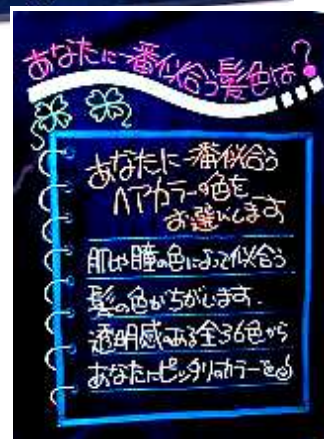 あなたに一番似合う髪色は?
あなたに一番似合う
ヘアカラーの色を
お選びします
肌や瞳の色によって似合う
髪の色がちがいます.
透明感のある全36色から
あなたにピッタリのカラーを